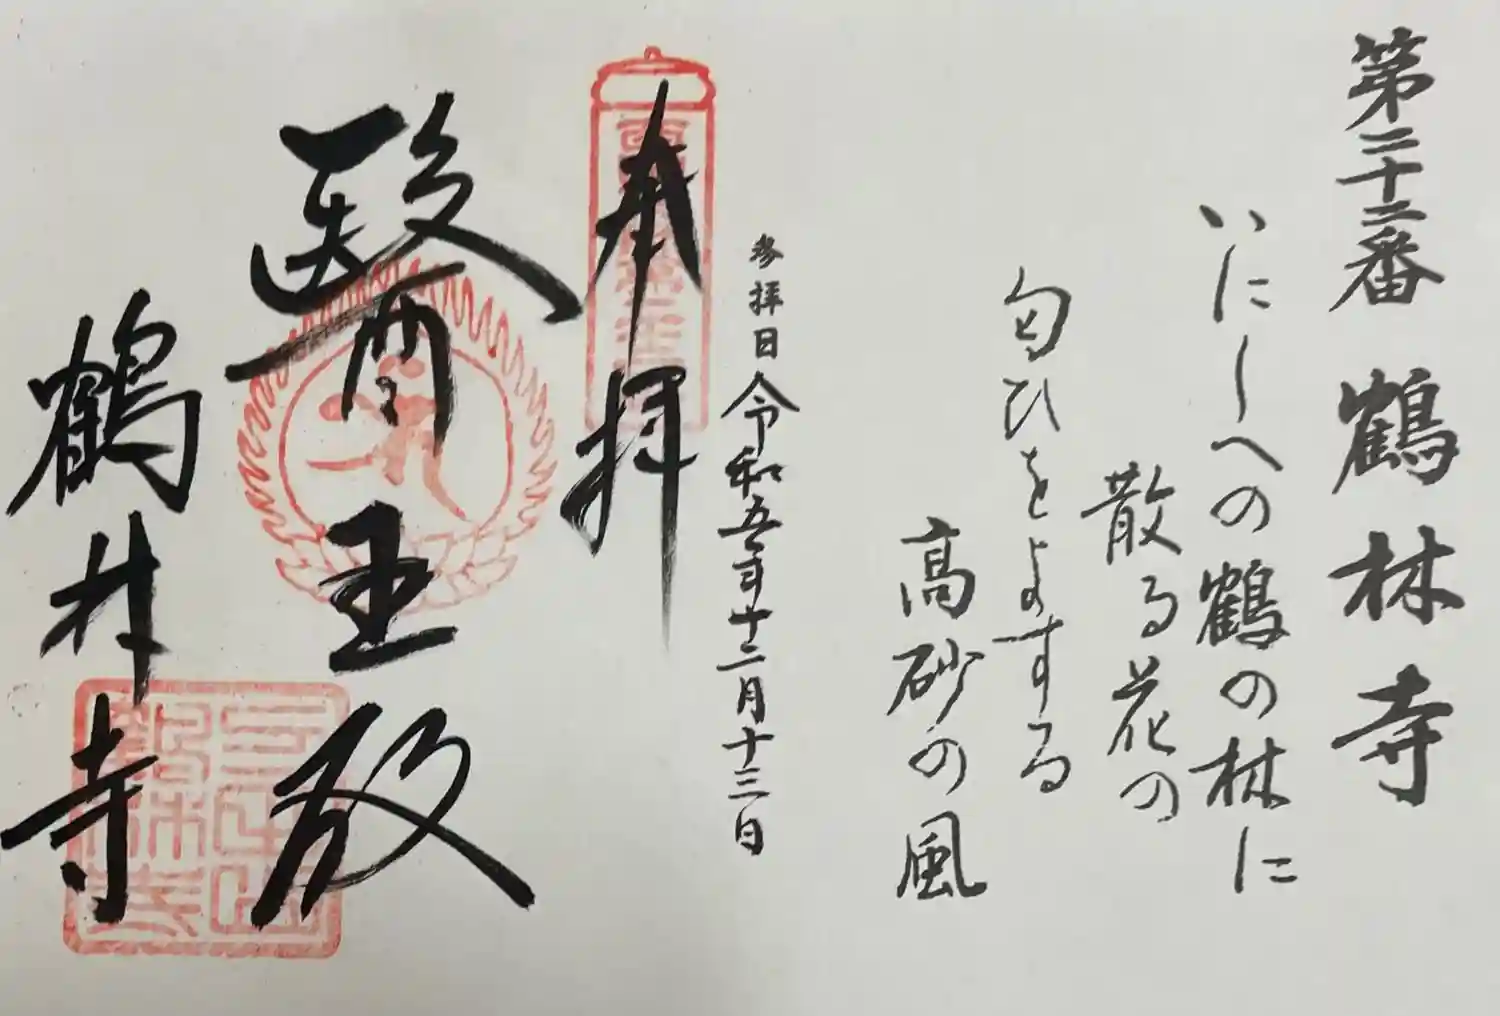 第二十二番 鶴林寺
いにしへの鶴の林に
散る花の
匂ひをよする
高砂の風
参拝日令和五年十二月十三日
奉拝
醫王殿
鶴林寺